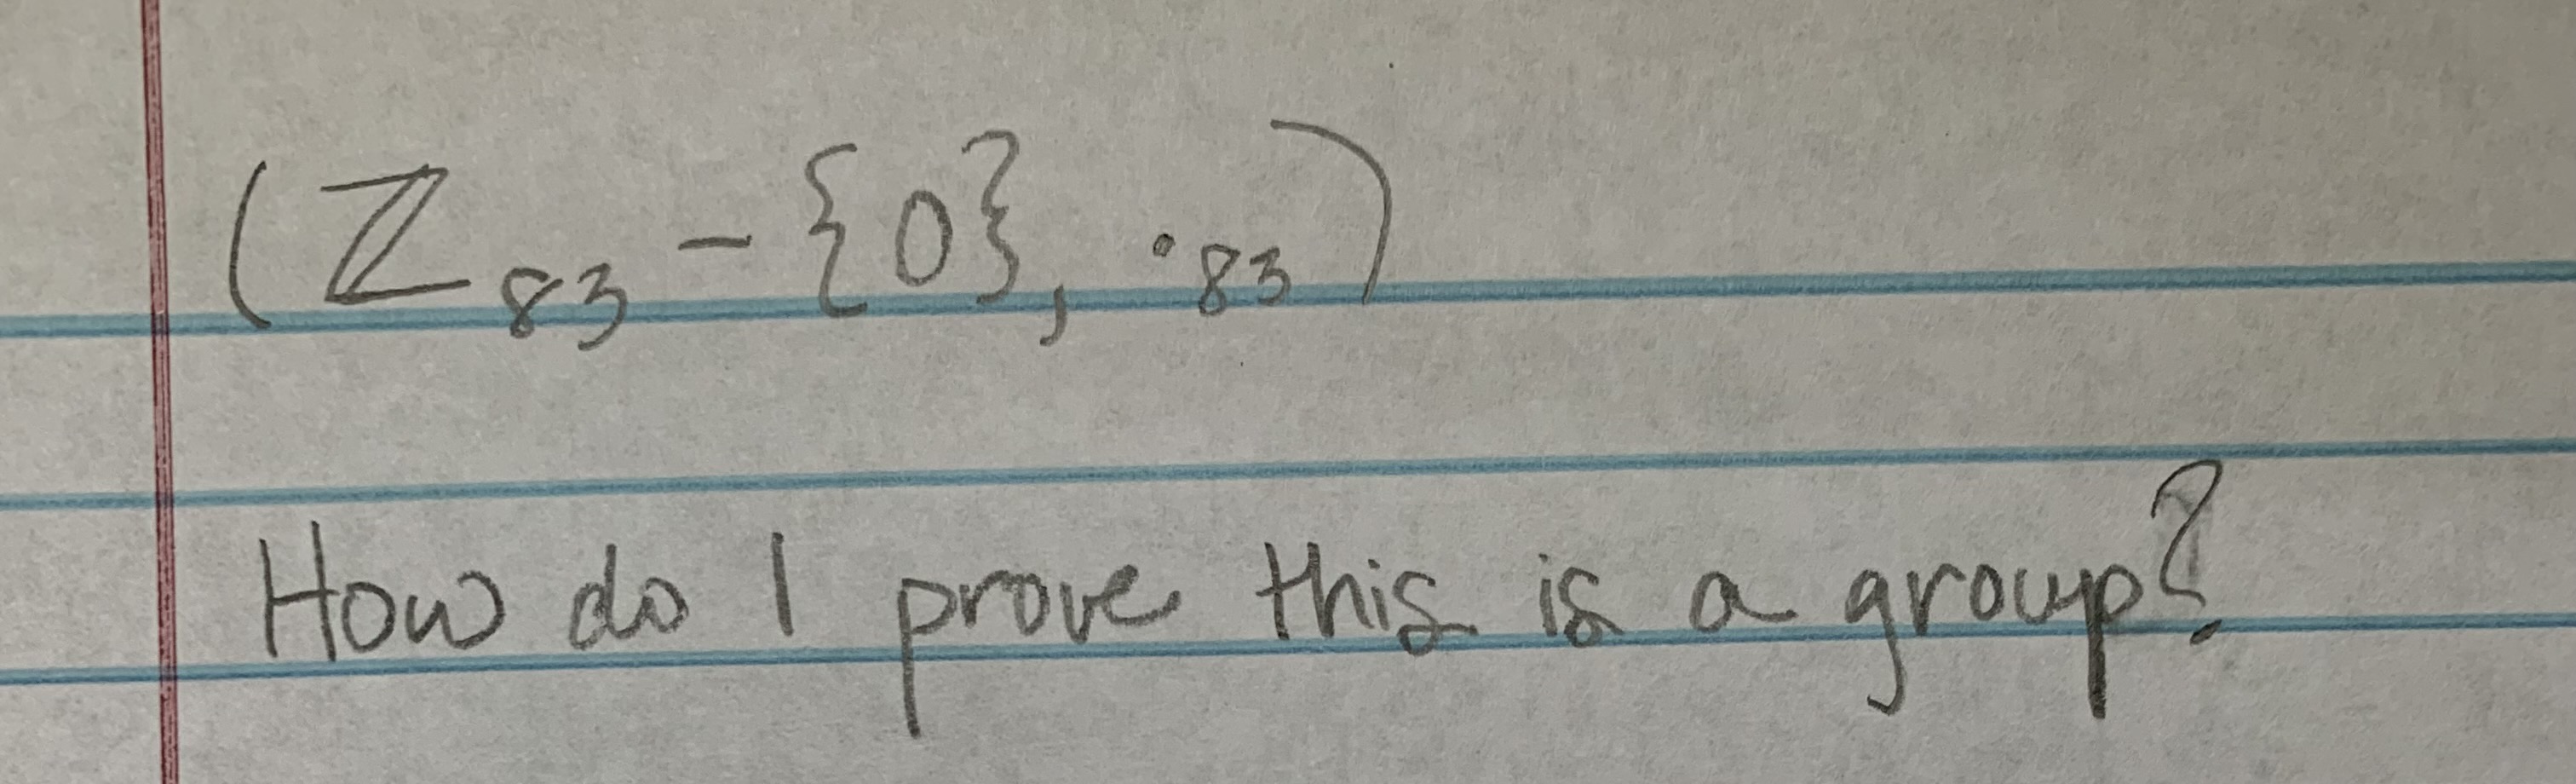 (ℤ₈₃ - {0}, ·₈₃)
How do I prove this is a group?